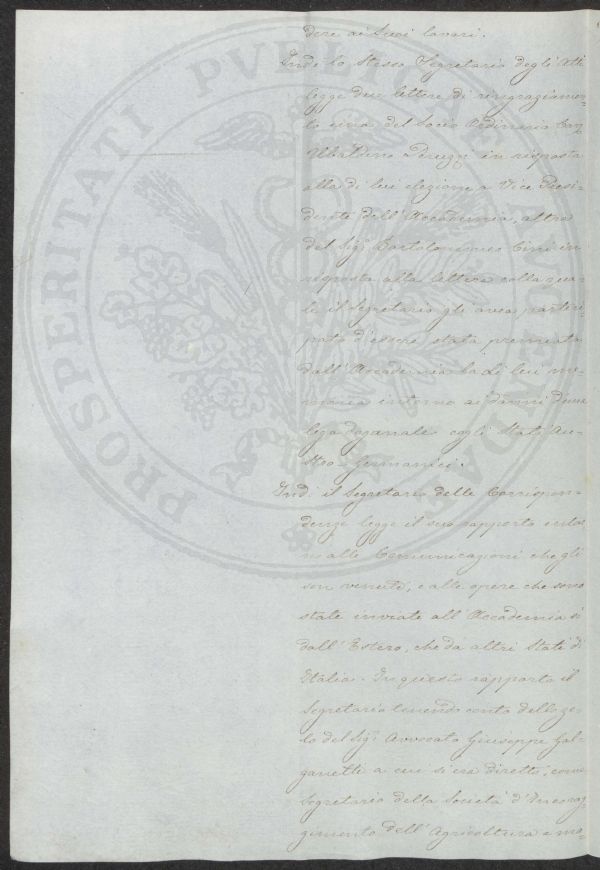 dere ai suoi lavori.
Indi lo stesso Segretario degli Atti
legge due lettere di ringraziamen-
to una del Socio Ordinario Cav
Ubaldino Peruzzi in risposta
alla di lui elezione a Vice Presi-
dente dell'Accademia, altra
del Sigr Bartolommeo Cini in
risposta alla lettera colla qua-
le il Segretario gli avea parteci-
pato d'essere stata premiata
dall'Accademia la di lui me-
moria intorno ai danni d'una
lega doganale cogli Stati Au-
stro Germanici.
Indi il Segretario delle Corrispon-
denze legge il suo rapporto intor
no alle Comunicazioni che gli
son venute, e alle opere che sono
state inviate all'Accademia sì
dall'Estero, che da altri Stati di
Italia. In questo rapporto il
Segretario tenendo conto dello ze-
lo del Sigr Avvocato Giuseppe Gal-
ganetti a cui si era diretto, come
Segretario della Società d'Incorag
gimento dell'Agricoltura e mo-
PROSPERITATI PVBLICAE AVGENDAE